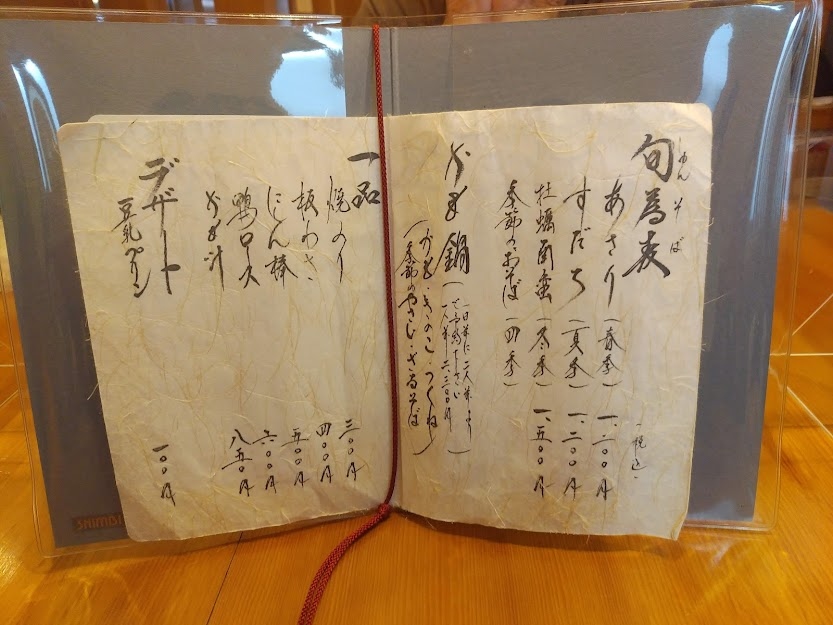 旬蕎麦
しゅん そば
税込
あさり(春季) 一、二〇〇円
すだち(夏季) 一、二〇〇円
牡蠣南蛮(冬季) 一、五〇〇円
季節のおそば(四季)
かも鍋
(一日前に二人前より
ご予約下さい
一人前 二、三〇〇円)
(かも・きのこ・つくね・
季節のやさい・ざるそば)
一品
焼のり 三〇〇円
板わさ 四〇〇円
にしん棒 五〇〇円
鴨ロース 六〇〇円
かも汁 八五〇円
デザート
豆乳プリン 一〇〇円